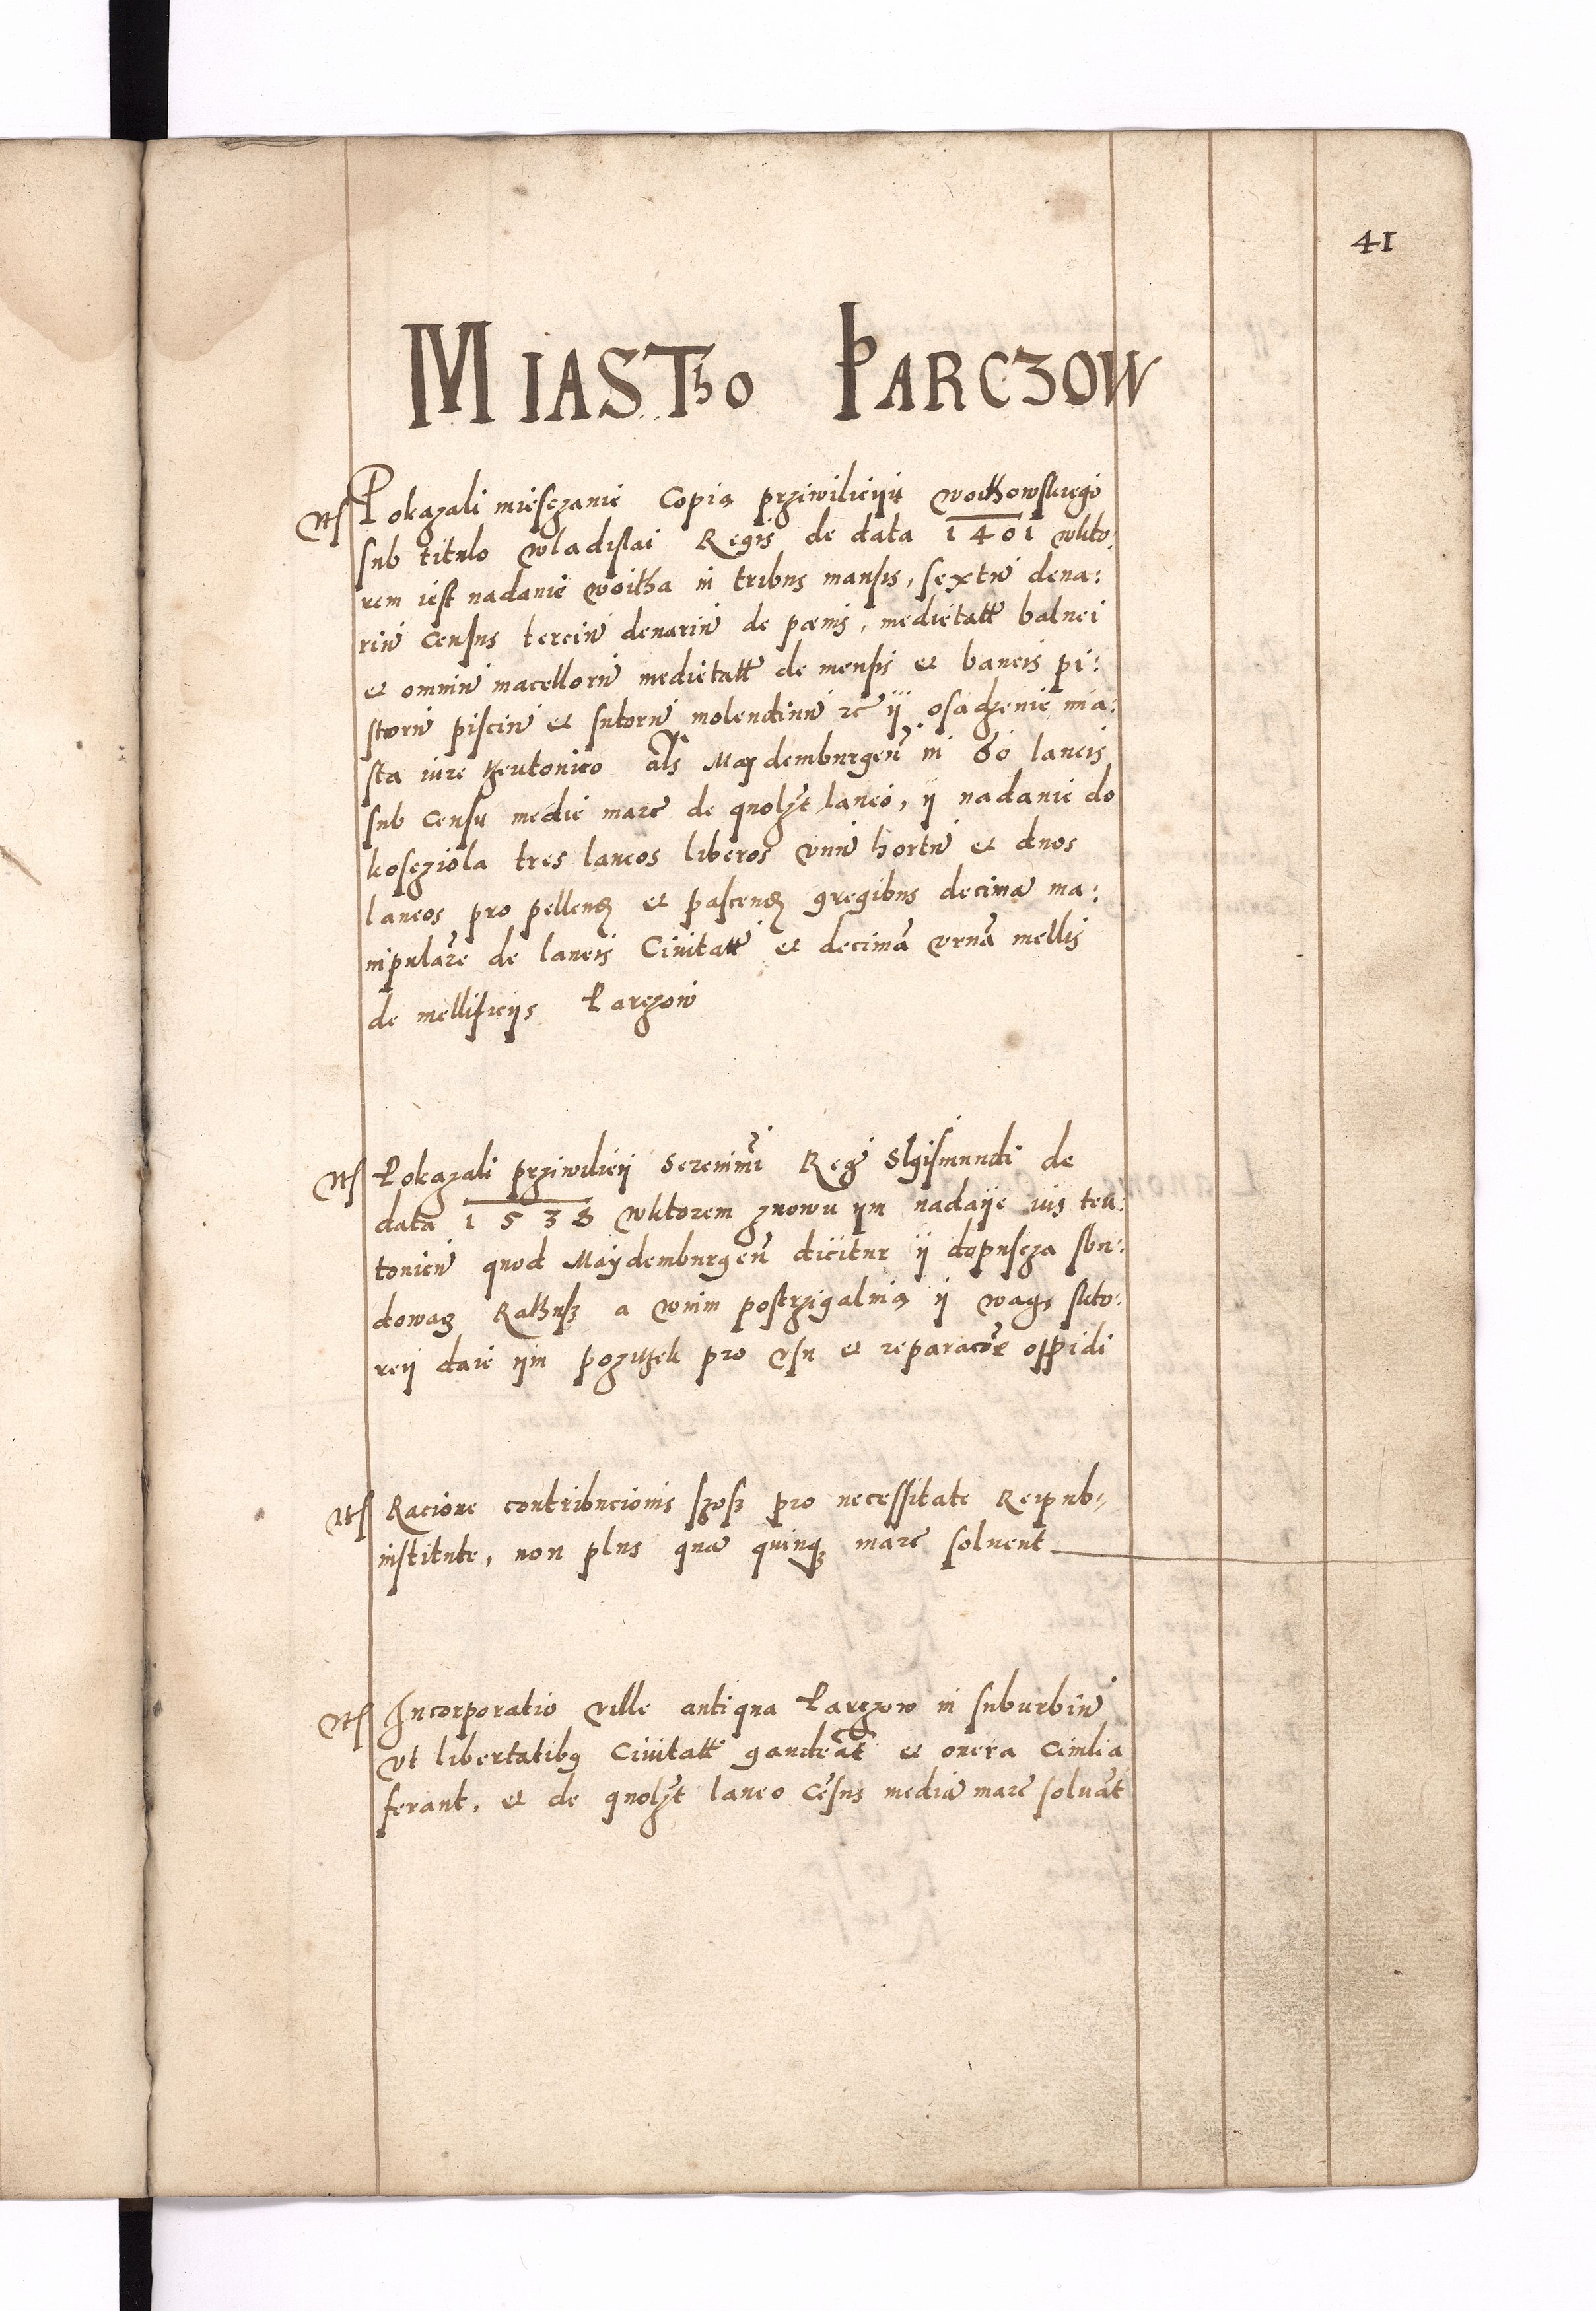 41
MIASTho PARCZOW
Nts Pokazali miesczanie Copią prziwilieyu woithowskiego
sub titulo wladislai Regis de data 1401 wkto:
rem iest nadanie woitha in tribus mansis, sextū dena:
riū census terciū denariū de pœnis, medietatē balnei
et omniū macellorū medietatē de mensis et bancis pi:
storū pisciū et sutorū molendinū etc ÿ osadzenie mia:
sta iure theutonico als Maydemburgeñ in 60 laneis
sub censu medie marc de quolzt laneo, ÿ nadanie do
koscziola tres laneos liberos vnū hortū et duos
laneos pro pellend et pascend gregibus decimā ma:
nipularē de laneis Ciuitatē et decimā vrnā mellis
de mellificiis Parczow
Nts Pokazali prziwiliey Serenimi Regē Sigismundi de
data 1538 wktorem znowu ym nadaye ius teu:
tonicū quod Maydemburgeñ dicitur ÿ dopuscza sbu:
dowacz Rathusz a wnim postrzigalnią ÿ wagę skto:
rey daie ym pozithek pro vsu et reparacōe oppidi
Nts Racione contribucionis szosz pro necessitate Reipub:
institute, non plus quā quinqȝ marc soluent
Nts Incorporatio ville antiqua Parczow in suburbiū
vt libertatibȝ Ciuitatē gaudeāt et onera Ciuilia
ferant, et de quolzt laneo cēsus mediā marc soluāt